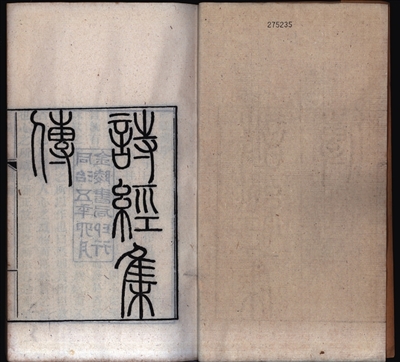 275235
詩經集
傳